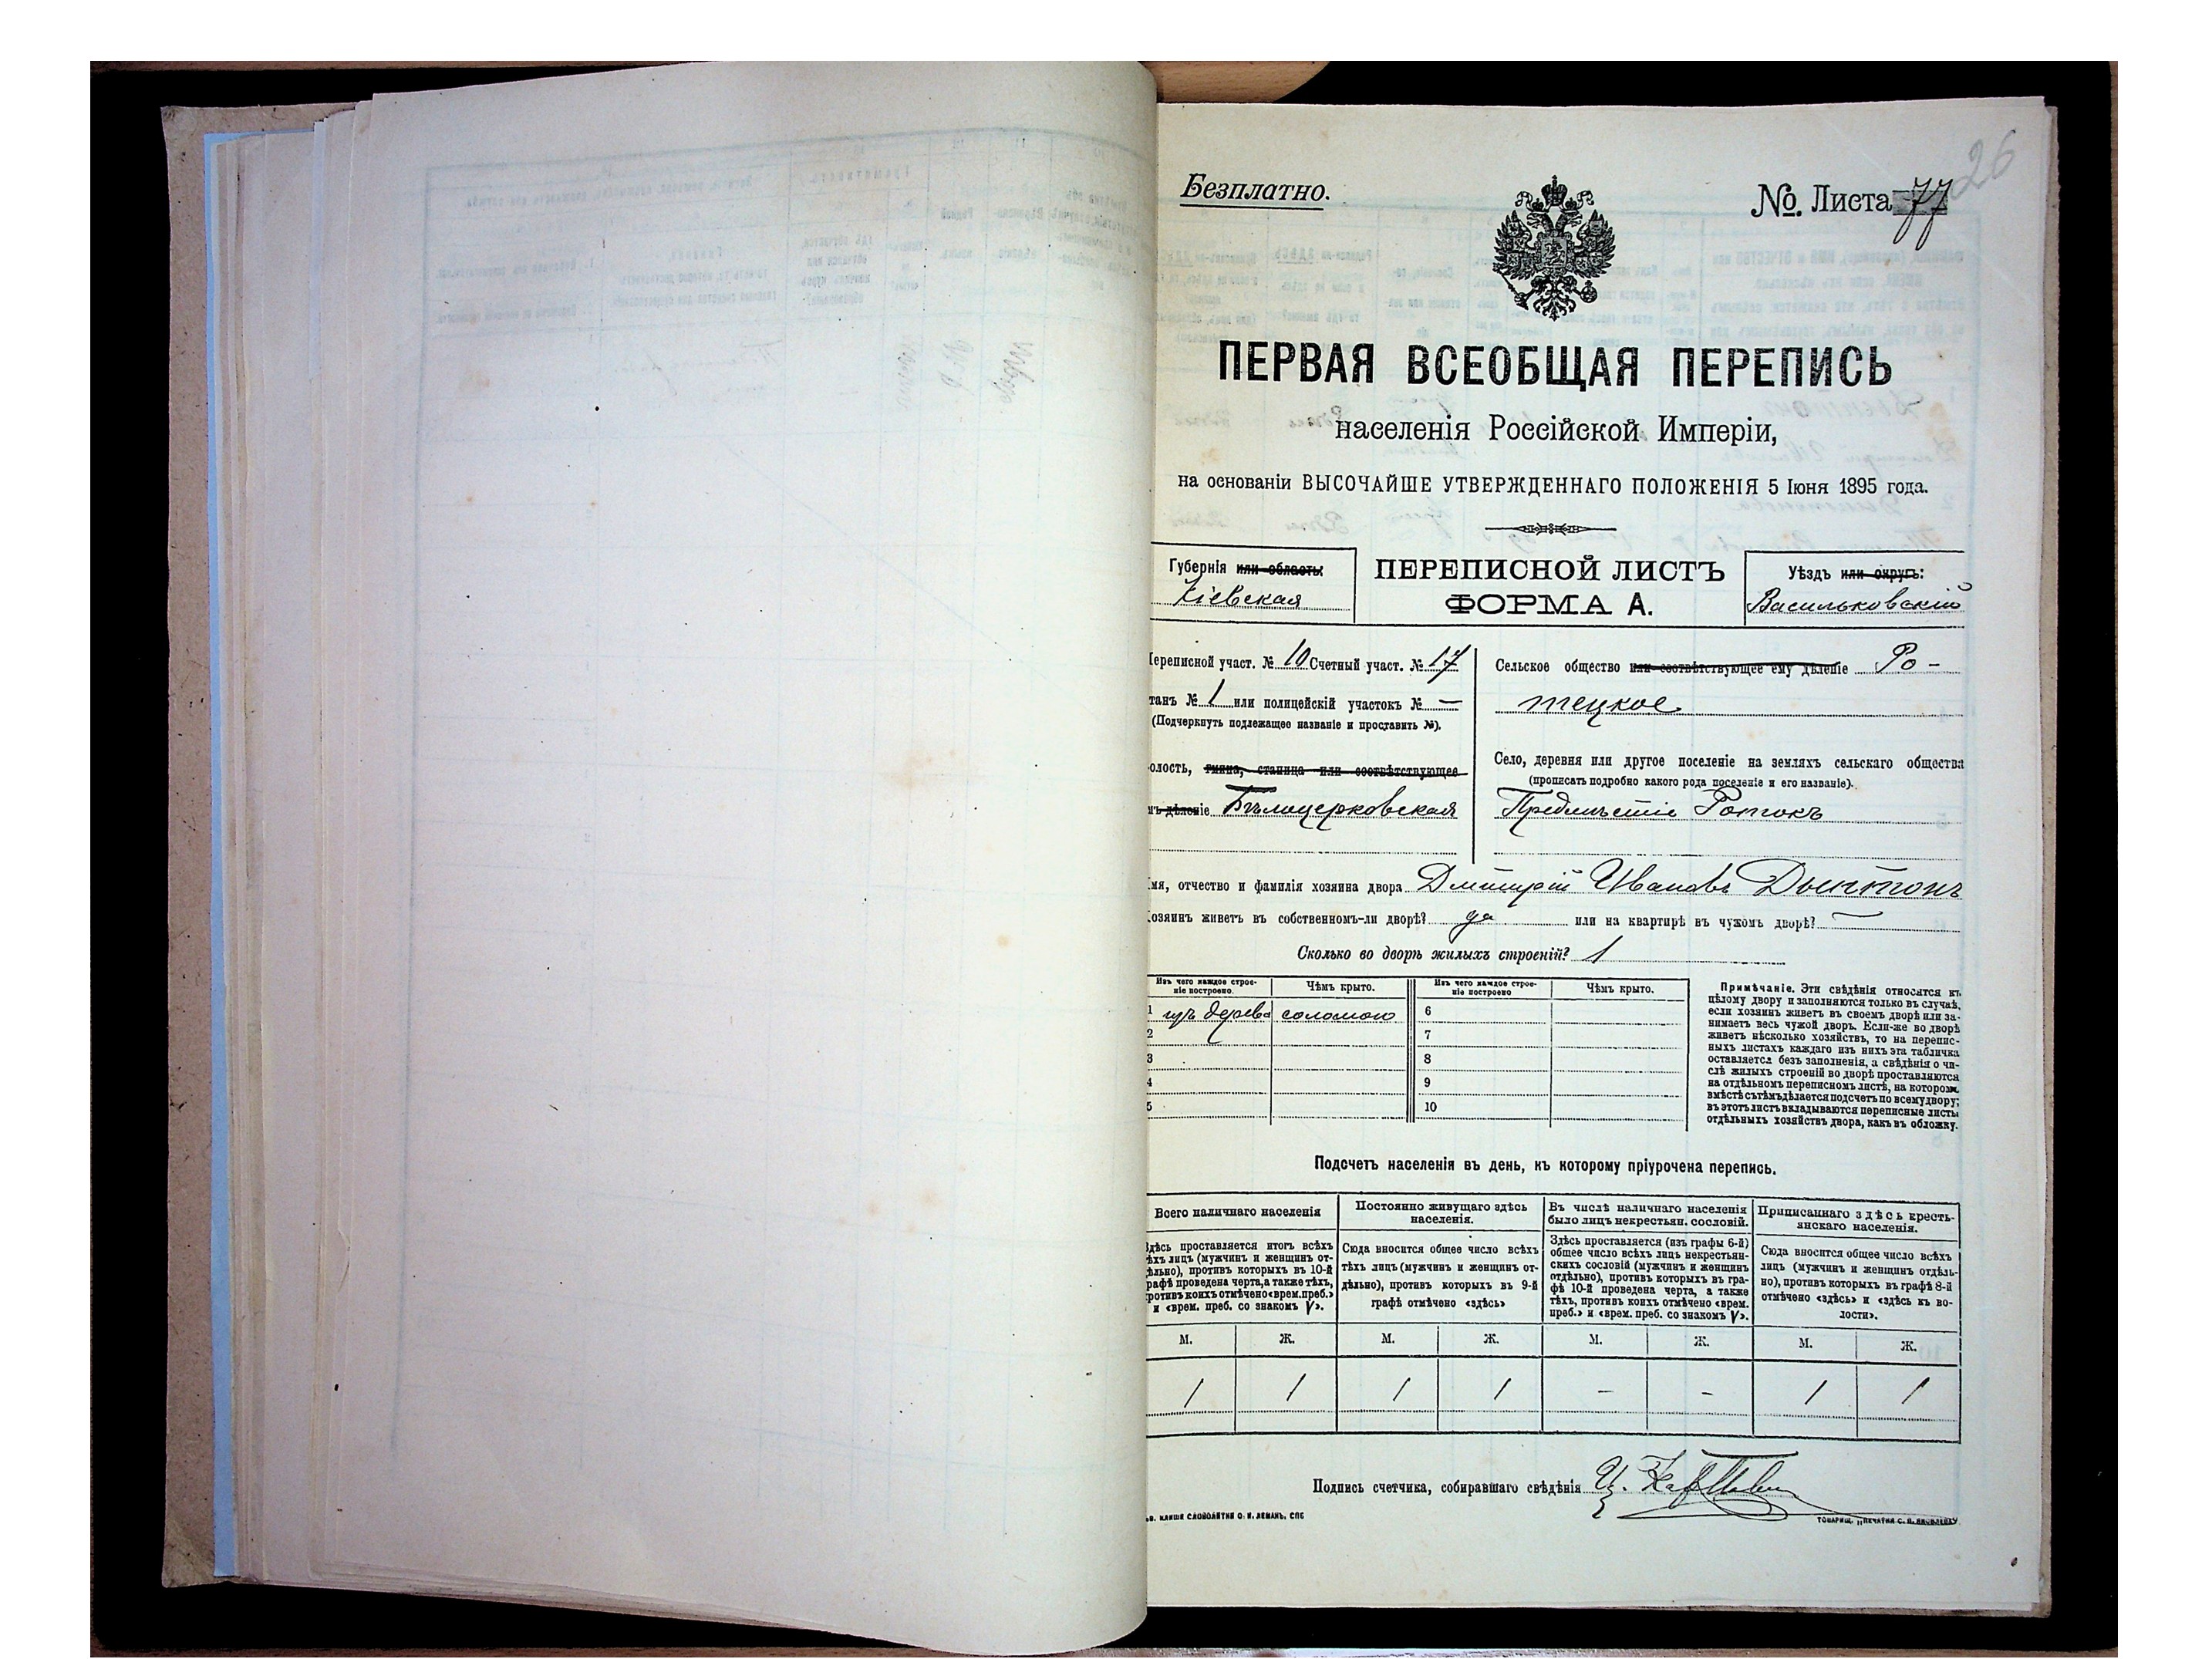 26
Безплатно.
№ Листа 77
ПЕРВАЯ ВСЕОБЩАЯ ПЕРЕПИСЬ
населенія Россійской Имперіи,
на основаніи ВЫСОЧАЙШЕ УТВЕРЖДЕННАГО ПОЛОЖЕНІЯ 5 Іюня 1895 года.
Губернія или область:
Кіевская
ПЕРЕПИСНОЙ ЛИСТЪ
ФОРМА А.
Уѣздъ или округъ:
Васильковскій
Переписной участ. № 10 Счетный участ. № 17
танъ № 1 или полицейскій участокъ № —
(Подчеркнуть подлежащее названіе и проставить №).
олость, гмина, станица или соотвѣтствующее
мъ дѣленіе Бѣлоцерковская
Сельское общество или соотвѣтствующее ему дѣленіе Ро-
тецкое
Село, деревня или другое поселеніе на земляхъ сельскаго общества
(прописать подробно какого рода поселеніе и его названіе).
Предмѣстіе Ротокъ
мя, отчество и фамилія хозяина двора Дмитрій Ивановъ
озяинъ живетъ въ собственномъ-ли дворѣ? да или на квартирѣ въ чужомъ дворѣ? —
Сколько во дворѣ жилыхъ строеній? 1
Изъ чего каждое строе-
ніе построено.
Чѣмъ крыто.
Изъ чего каждое строе-
ніе построено
Чѣмъ крыто.
1 изъ дерева соломою 6
2 7
3 8
4 9
5 10
Примѣчаніе. Эти свѣдѣнія относятся къ
цѣлому двору и заполняются только въ случаѣ,
если хозяинъ живетъ въ своемъ дворѣ или за-
нимаетъ весь чужой дворъ. Если-же во дворѣ
живетъ нѣсколько хозяйствъ, то на перепис-
ныхъ листахъ каждаго изъ нихъ эта табличка
оставляется безъ заполненія, а свѣдѣнія о чи-
слѣ жилыхъ строеній во дворѣ проставляются
на отдѣльномъ переписномъ листѣ, на которомъ
вмѣстѣ съ тѣмъ дѣлается подсчетъ по всему двору;
въ этотъ листъ вкладываются переписные листы
отдѣльныхъ хозяйствъ двора, какъ въ обложку.
Подсчетъ населенія въ день, къ которому пріурочена перепись.
Всего наличнаго населенія
Здѣсь проставляется итогъ всѣхъ
ѣхъ лицъ (мужчинъ и женщинъ от-
дѣльно), противъ которыхъ въ 10-й
рафѣ проведена черта, а также тѣхъ,
ротивъ коихъ отмѣчено «врем. преб.»
и «врем. преб. со знакомъ V».
Постоянно живущаго здѣсь
населенія.
Сюда вносится общее число всѣхъ
тѣхъ лицъ (мужчинъ и женщинъ от-
дѣльно), противъ которыхъ въ 9-й
графѣ отмѣчено «здѣсь»
Въ числѣ наличнаго населенія
было лицъ некрестьян. сословій.
Здѣсь проставляется (изъ графы 6-й)
общее число всѣхъ лицъ некрестьян-
скихъ сословій (мужчинъ и женщинъ
отдѣльно), противъ которыхъ въ гра-
фѣ 10-й проведена черта, а также
тѣхъ, противъ коихъ отмѣчено «врем.
преб.» и «врем. преб. со знакомъ V».
Приписаннаго здѣсь кресть-
янскаго населенія.
Сюда вносится общее число всѣхъ
лицъ (мужчинъ и женщинъ отдѣль-
но), противъ которыхъ въ графѣ 8-й
отмѣчено «здѣсь» и «здѣсь къ во-
лости».
М. Ж. М. Ж. М. Ж. М. Ж.
1 1 1 1 - - 1 1
Подпись счетчика, собиравшаго свѣдѣнія
КЛИШЕ СЛОВОЛИТНИ О. И. ЛЕМАНЪ, СПБ
ТОВАРИЩ. „ПЕЧАТНИ С. П. ЯКОВЛЕВА"